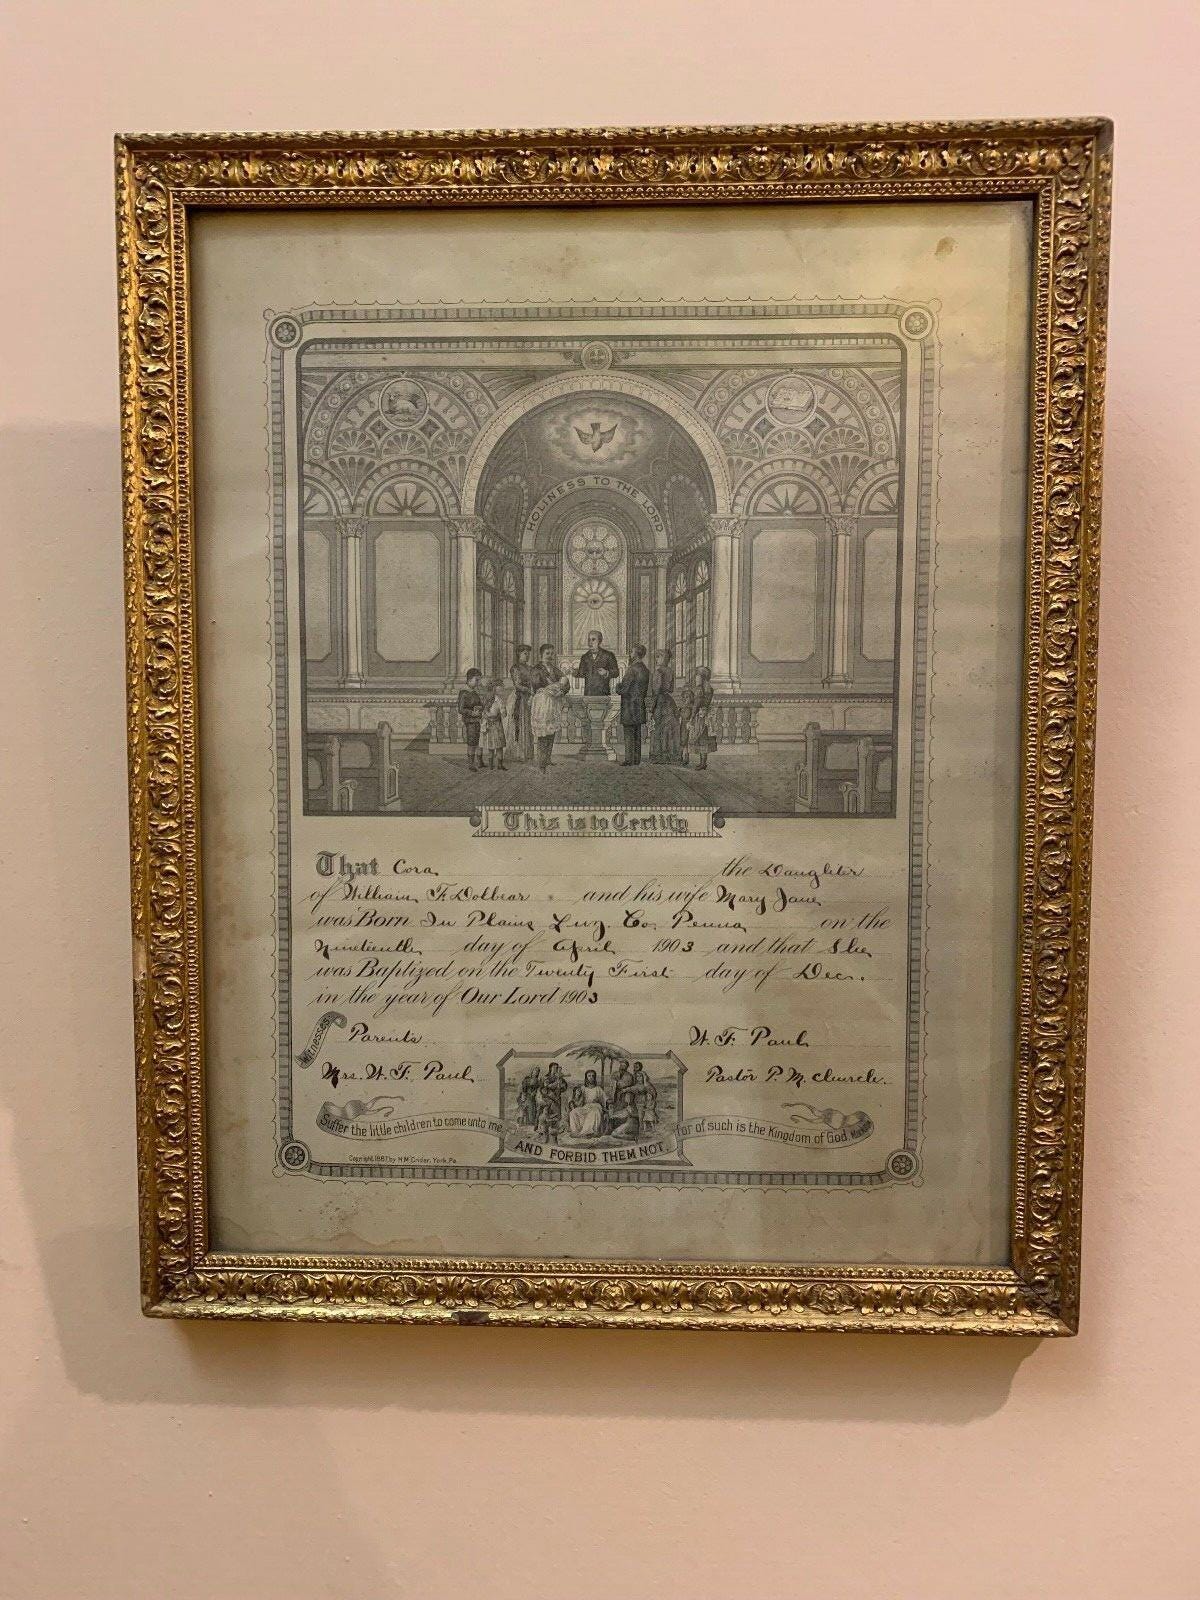 HOLINESS TO THE LORD
This is to Certify
That Cora the Daughter
of William F. Dolbear and his wife Mary Jane
was Born In Plains Luz. Co. Penna on the
Nineteenth day of April 1903 and that She
was Baptized on the Twenty First day of Dec.
in the year of Our Lord 1903
Witnesses
Parents W. F. Paul
Mrs. W. F. Paul Pastor P. M. Church.
Suffer the little children to come unto me, AND FORBID THEM NOT. for of such is the Kingdom of God.
Copyright 1887, by H.M. Crider, York, Pa.